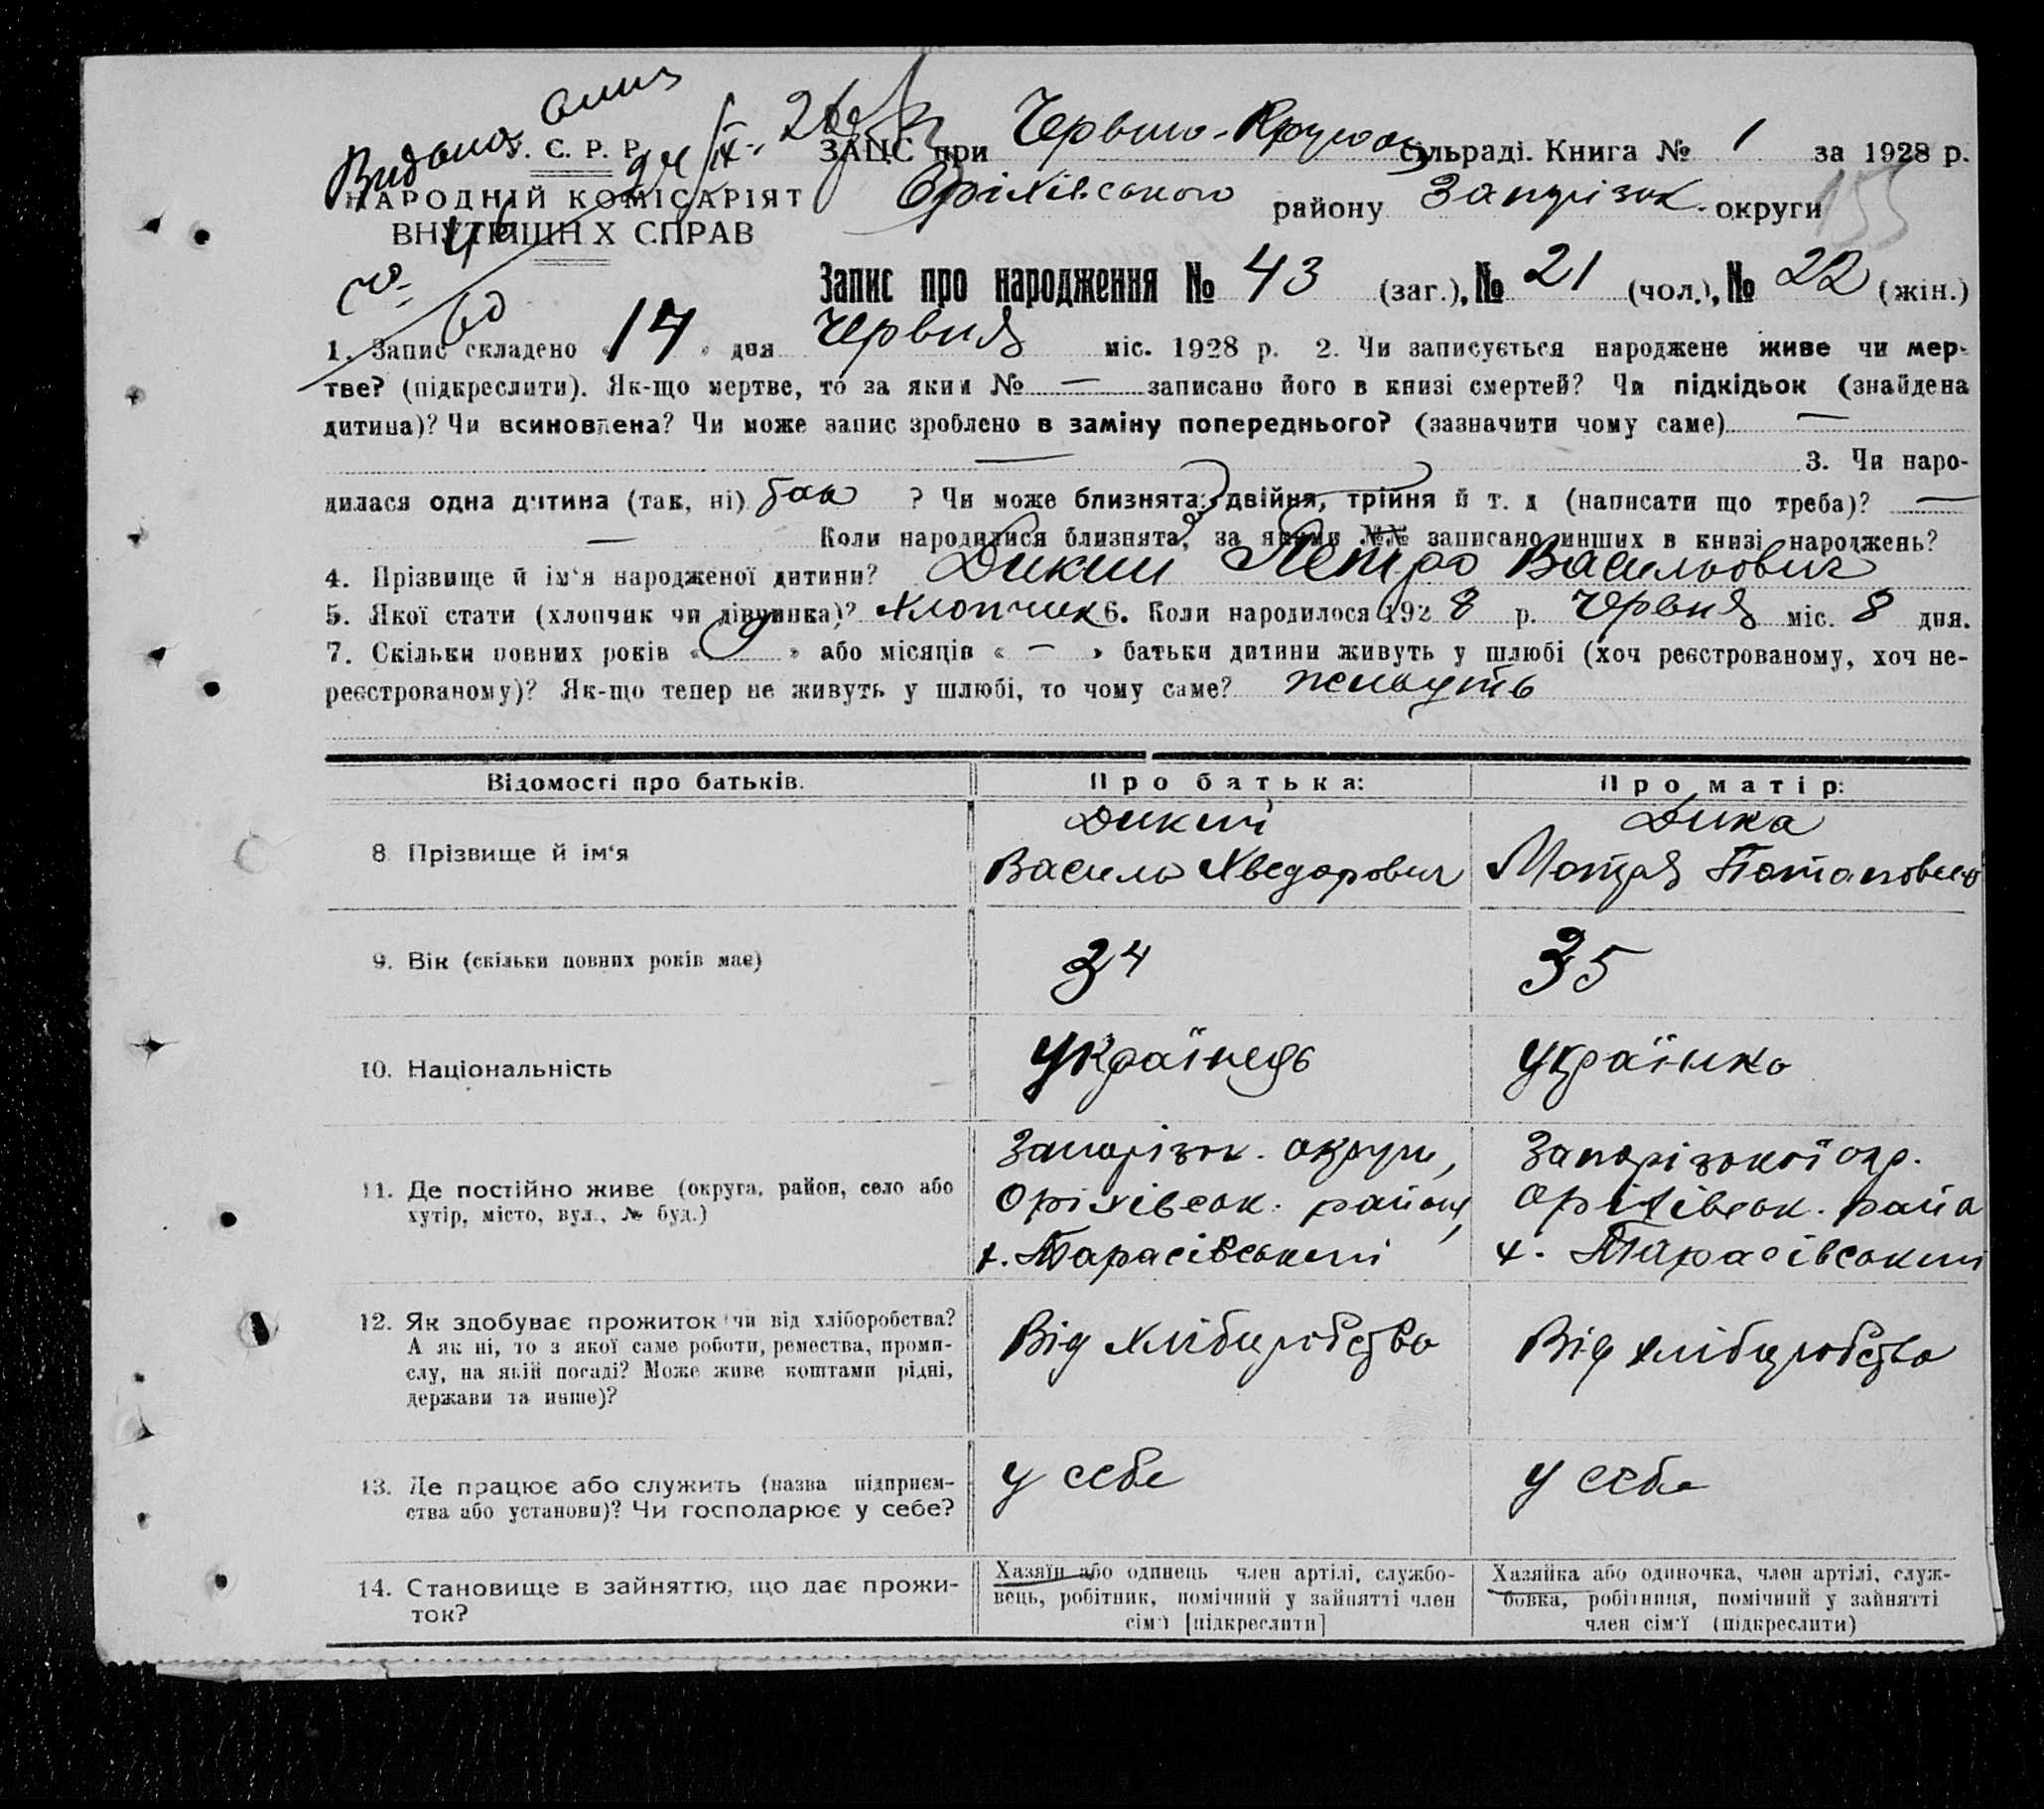 Видана
У. С. Р. Р.
НАРОДНІЙ КОМІСАРІЯТ
ВНУТРІШНІХ СПРАВ
ЗАЦС при Червоно- сільраді. Книга № 1 за 1928 р.
Оріхівського району Запорізьк. округи
155
Запис про народження № 43 (заг.), № 21 (чол.), № 22 (жін.)
1. Запис складено «14» дня Червня міс. 1928 р. 2. Чи записується народжене живе чи мер-
тве? (підкреслити). Як-що мертве, то за яким № — записано його в книзі смертей? Чи підкідьок (знайдена
дитина)? Чи всиновлена? Чи може запис зроблено в заміну попереднього? (зазначити чому саме) —
— 3. Чи наро-
дилася одна дитина (так, ні) так ? Чи може близнята: двійня, трійня й т. д (написати що треба)? —
— Коли народилися близнята, за якими №№ записано инших в книзі народжень?
4. Прізвище й ім'я народженої дитини? Дикий Петро Васильович
5. Якої стати (хлопчик чи дівчинка)? Хлопчик 6. Коли народилося 1928 р. Червня міс. 8 дня.
7. Скільки повних років « 9 » або місяців « — » батьки дитини живуть у шлюбі (хоч реєстрованому, хоч не-
реєстрованому)? Як-що тепер не живуть у шлюбі, то чому саме? живуть
Відомості про батьків. Про батька: Про матір:
8 Прізвище й ім'я Дикий Дика
Василь Хведорович Мотря Потаповна
9. Вік (скільки повних років має) 34 35
10. Національність Українець Українка
11. Де постійно живе (округа, район, село або хутір, місто, вул., № буд.)
Запоріз'к. округи, Запорізької окр.
Оріхівськ. району, Оріхівськ. райо
х. Тарасівський х. Тарасівський
12. Як здобуває прожиток чи від хліборобства?
А як ні, то з якої саме роботи, ремества, проми-
слу, на якій посаді? Може живе коштами рідні,
держави та инше)?
Від хліборобства Від хліборобства
13. Де працює або служить (назва підприєм-
ства або установи)? Чи господарює у себе?
у себе у себе
14. Становище в зайняттю, що дає прожи-
ток?
Хазяїн або одинець член артілі, службо-
вець, робітник, помічний у зайнятті член
сім'ї [підкреслити]
Хазяйка або одиночка, член артілі, служ-
бовка, робітниця, помічний у зайнятті
член сім'ї (підкреслити)